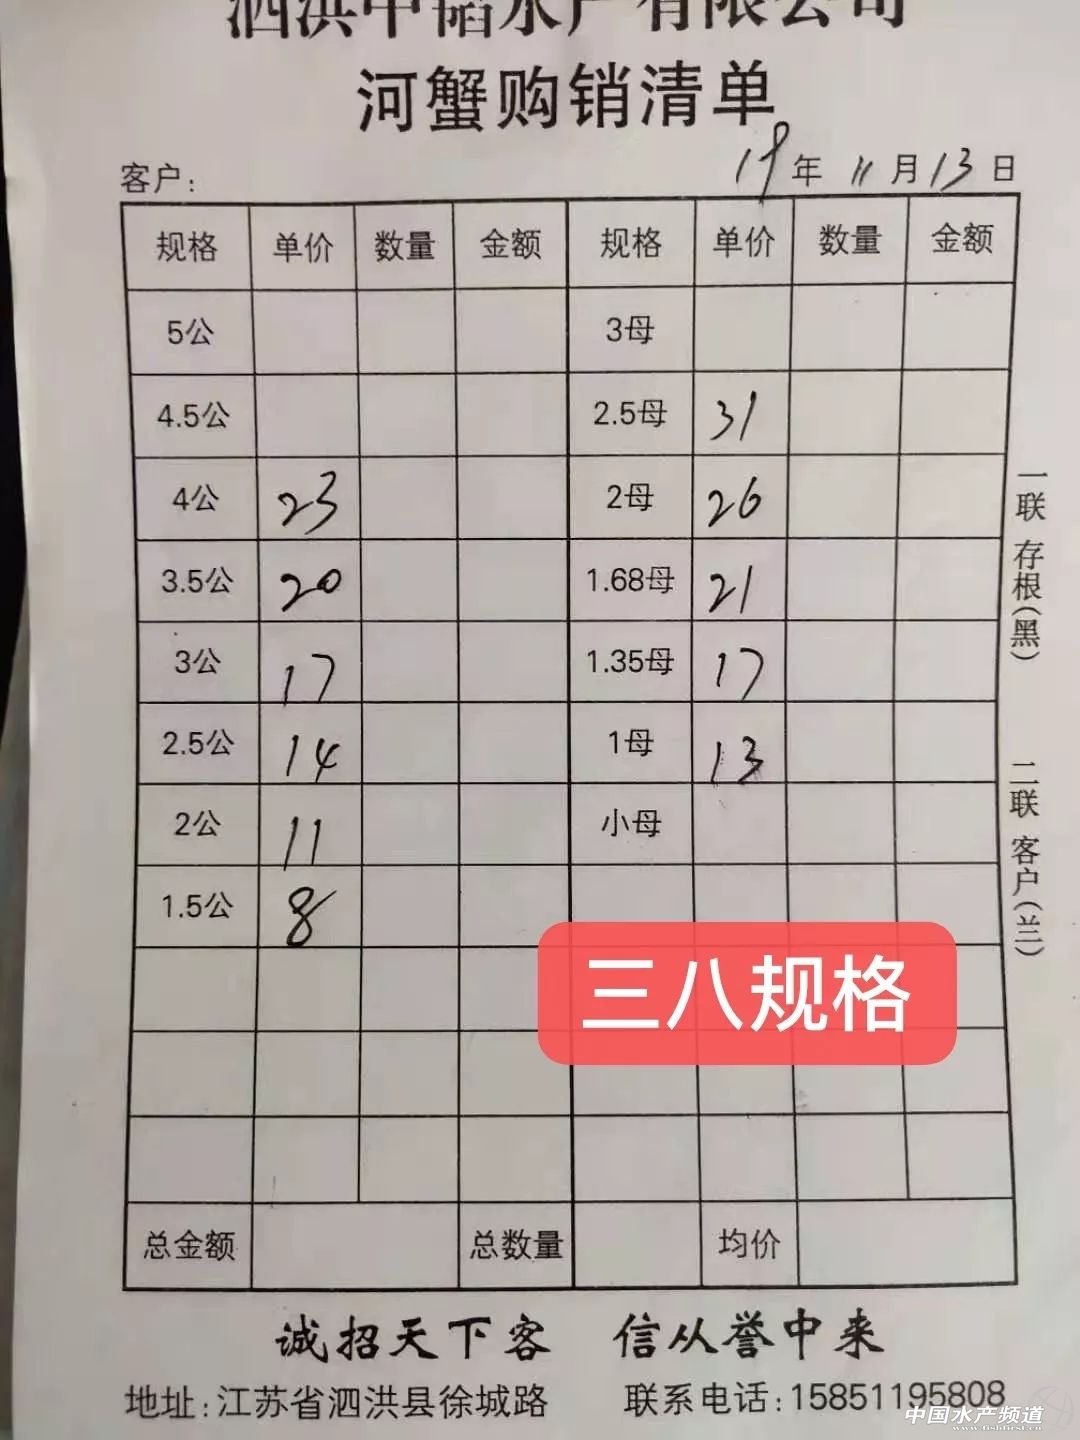 泗洪中韬水产有限公司
河蟹购销清单
客户: 19年 11月13日
规格 单价 数量 金额 规格 单价 数量 金额
5公 3母
4.5公 2.5母 31
4公 23 2母 26
3.5公 20 1.68母 21
3公 17 1.35母 17
2.5公 14 1母 13
2公 11 小母
1.5公 8
三八规格
总金额 总数量 均价
一联 存根(黑) 二联 客户(兰)
诚招天下客 信从誉中来
地址:江苏省泗洪县徐城路 联系电话:15851195808
中国水产频道
www.fishfirst.cn